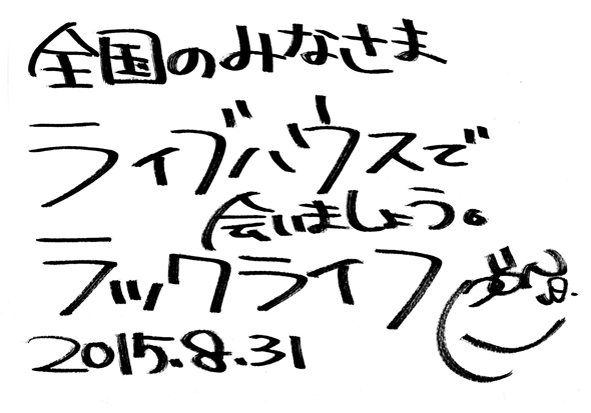 全国のみなさま
ライブハウスで
会いましょう。
ラックライフ
2015.8.31